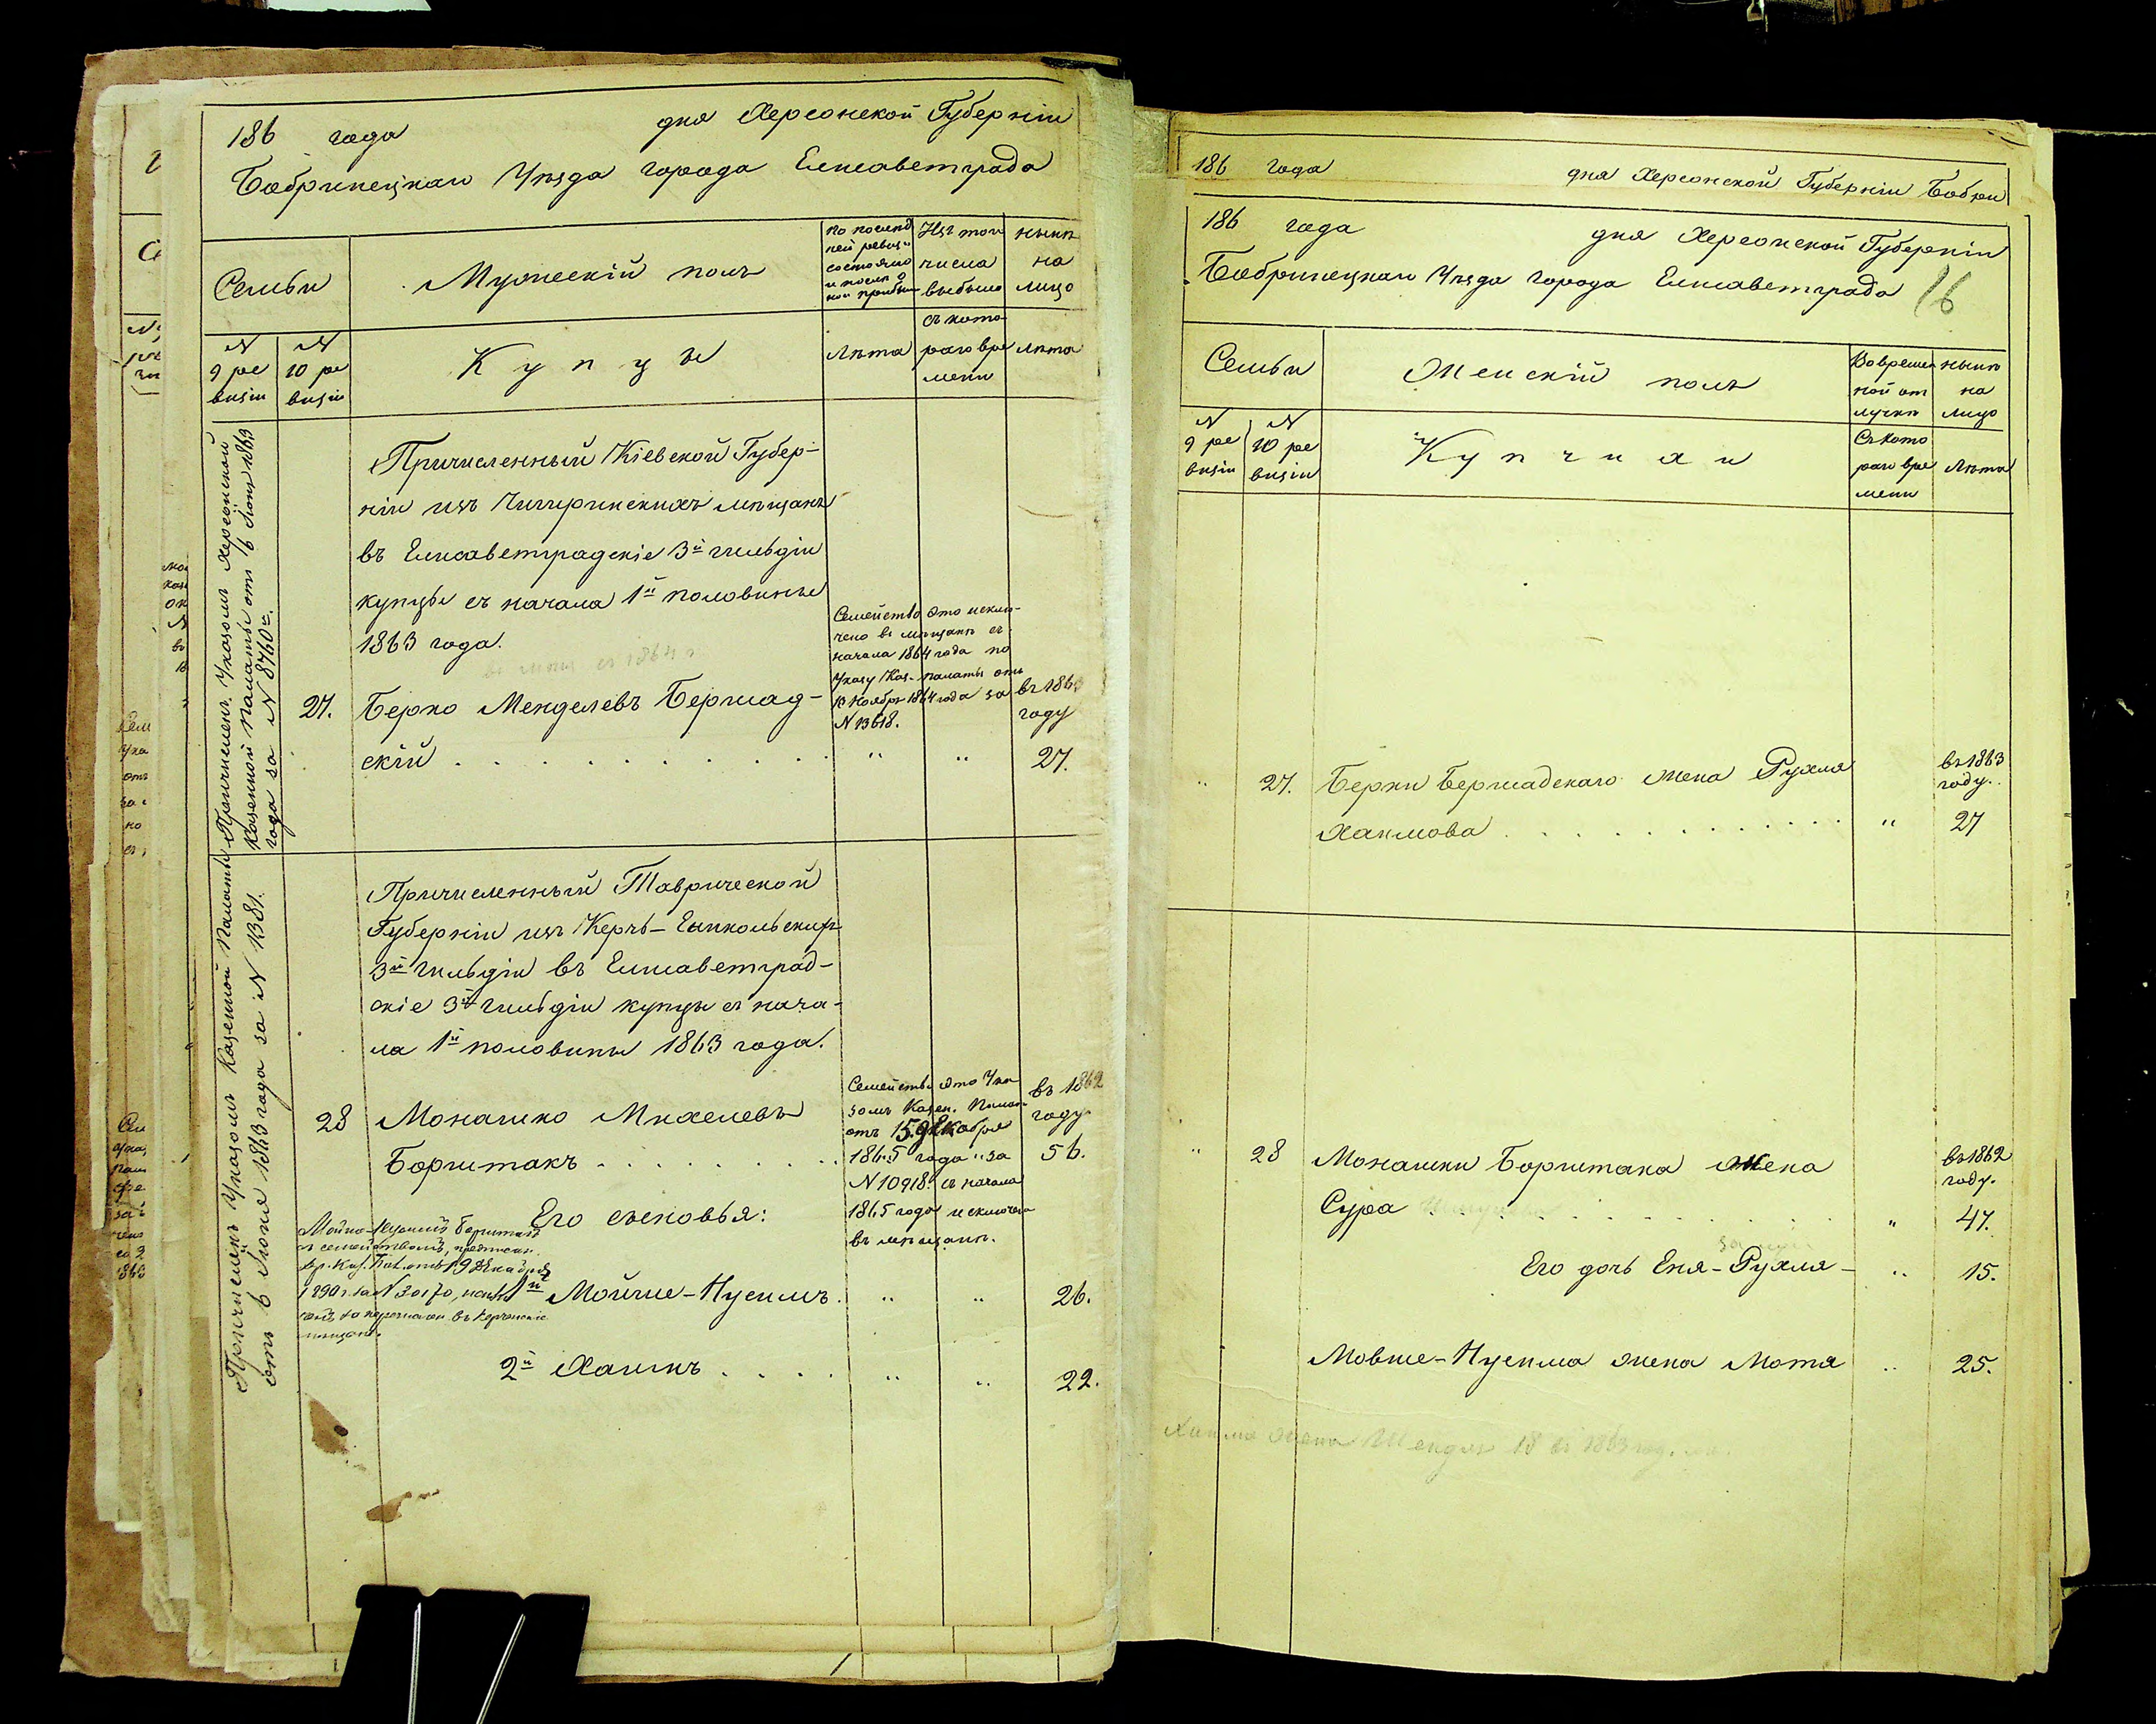 186 года дня Херсонской Губерніи
Бобринецкаго Уѣзда города Елисаветграда
Семьи
Мужескій полъ
по послѣд
ней ревиз.
состояло
и послѣ о
ной прибы
Изъ того
числа
выбыло
нынѣ
на
лицо
№
9 ре
визіи
№
10 ре
визіи
Купцы
Лѣта
съ кото
раго вре
мени
Лѣта
Причисленъ Указомъ Херсонской
Казенной Палаты отъ 6 Іюня 1863
года за № 8760м.
Причисленный Кіевской Губер-
ніи изъ Чигиринскихъ мѣщанъ
въ Елисаветградскіе 3й гильдіи
купцы съ начала 1й половины
1863 года.
Семейство это исклю-
чено въ мѣщане съ
начала 1864 года по
Указу Каз. палаты отъ
13 Ноября 1864 года за
№ 13618.
27. Берко Менделевъ Бершад-
скій . . . . . . . . . . . . " "
въ 1863
году
27.
Причисленъ Указомъ Казенной Палаты
отъ 6 Іюня 1863 года за № 1381.
Причисленный Таврической
Губерніи изъ Керчь-Еникольскихъ
3й гильдіи въ Елисаветград-
скіе 3й гильдіи купцы съ нача-
ла 1й половины 1863 года.
Семейство это Ука
зомъ Казен. Палат
отъ 15 декабря
1865 года за
№ 10918. съ начала
1865 года исключено
въ мѣщане.
28 Монашко Михелевъ
Борштакъ . . . . . . . . .
въ 1862
году
56.
Его сыновья:
1й Мойше-Нусимъ . " " 26.
2й Хаимъ . . . . " " 22.
186 года дня Херсонской Губерніи Бобри
186 года дня Херсонской Губерніи
Бобринецкаго Уѣзда города Елисаветграда 16
Семьи
Женскій полъ
Во времен
ной от
лучкѣ
нынѣ
на
лицо
№
9 ре
визіи
№
10 ре
визіи
Купчихи
Съ кото
раго вре
мени
Лѣта
" 27. Берки Бершадскаго жена Рухля
Хаимова . . . . . . . . . . . . . "
въ 1863
году.
27
" 28 Монашки Борштака жена
Сура . . . . . . . . . . . . "
въ 1862
году.
47.
Его дочь Еня-Рухля - " 15.
Мовше-Нусима жена Мотя " 25.
Хаима жена Шендля 18 въ 1863 год.